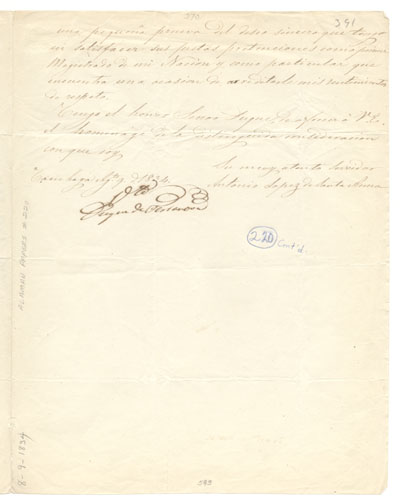 390
391
una pequeña prueba del deseo sincero que tengo
en satisfacer sus justas pretenciones como primer
Magistrado de mi Nacion y como particular que
encuentra una ocasion de acreditarle mis sentimientos
de respeto.
Tengo el honor Señor Duque de ofrecer á V. E.
el homenage de la consideracion
con que soy
Su muy atento servidor
Tacubaya 9 de 1834.
Antonio Lopez de Santa Anna
Duque de
220 Cont'd.
ALAMAN PAPERS # 220
8-9-1834